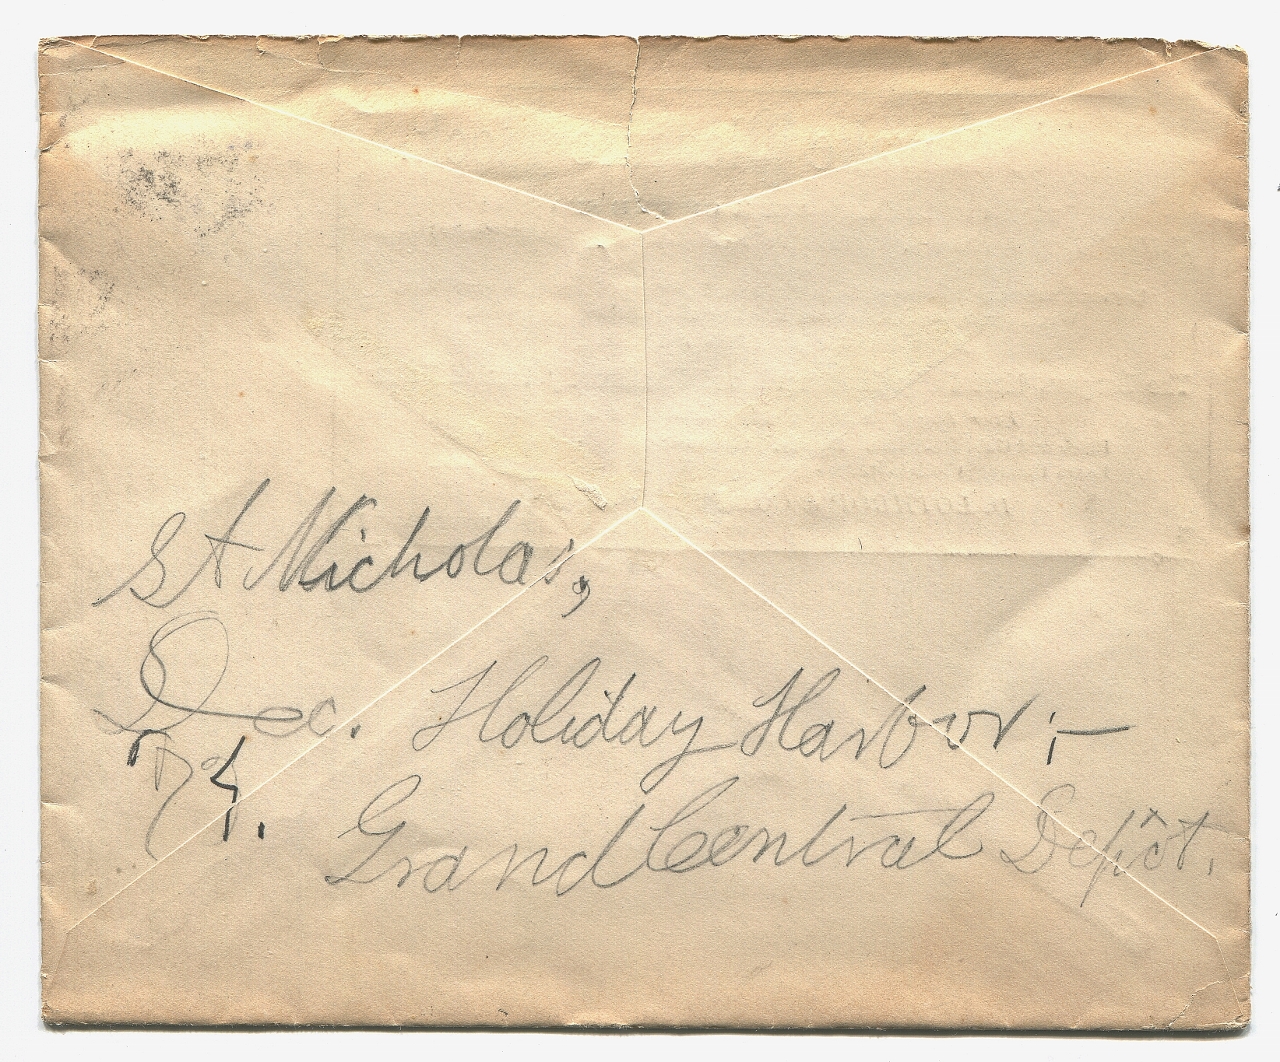 St Nicholas,
Dec. Holiday Harbor;—
74.
Grand Central Depôt.